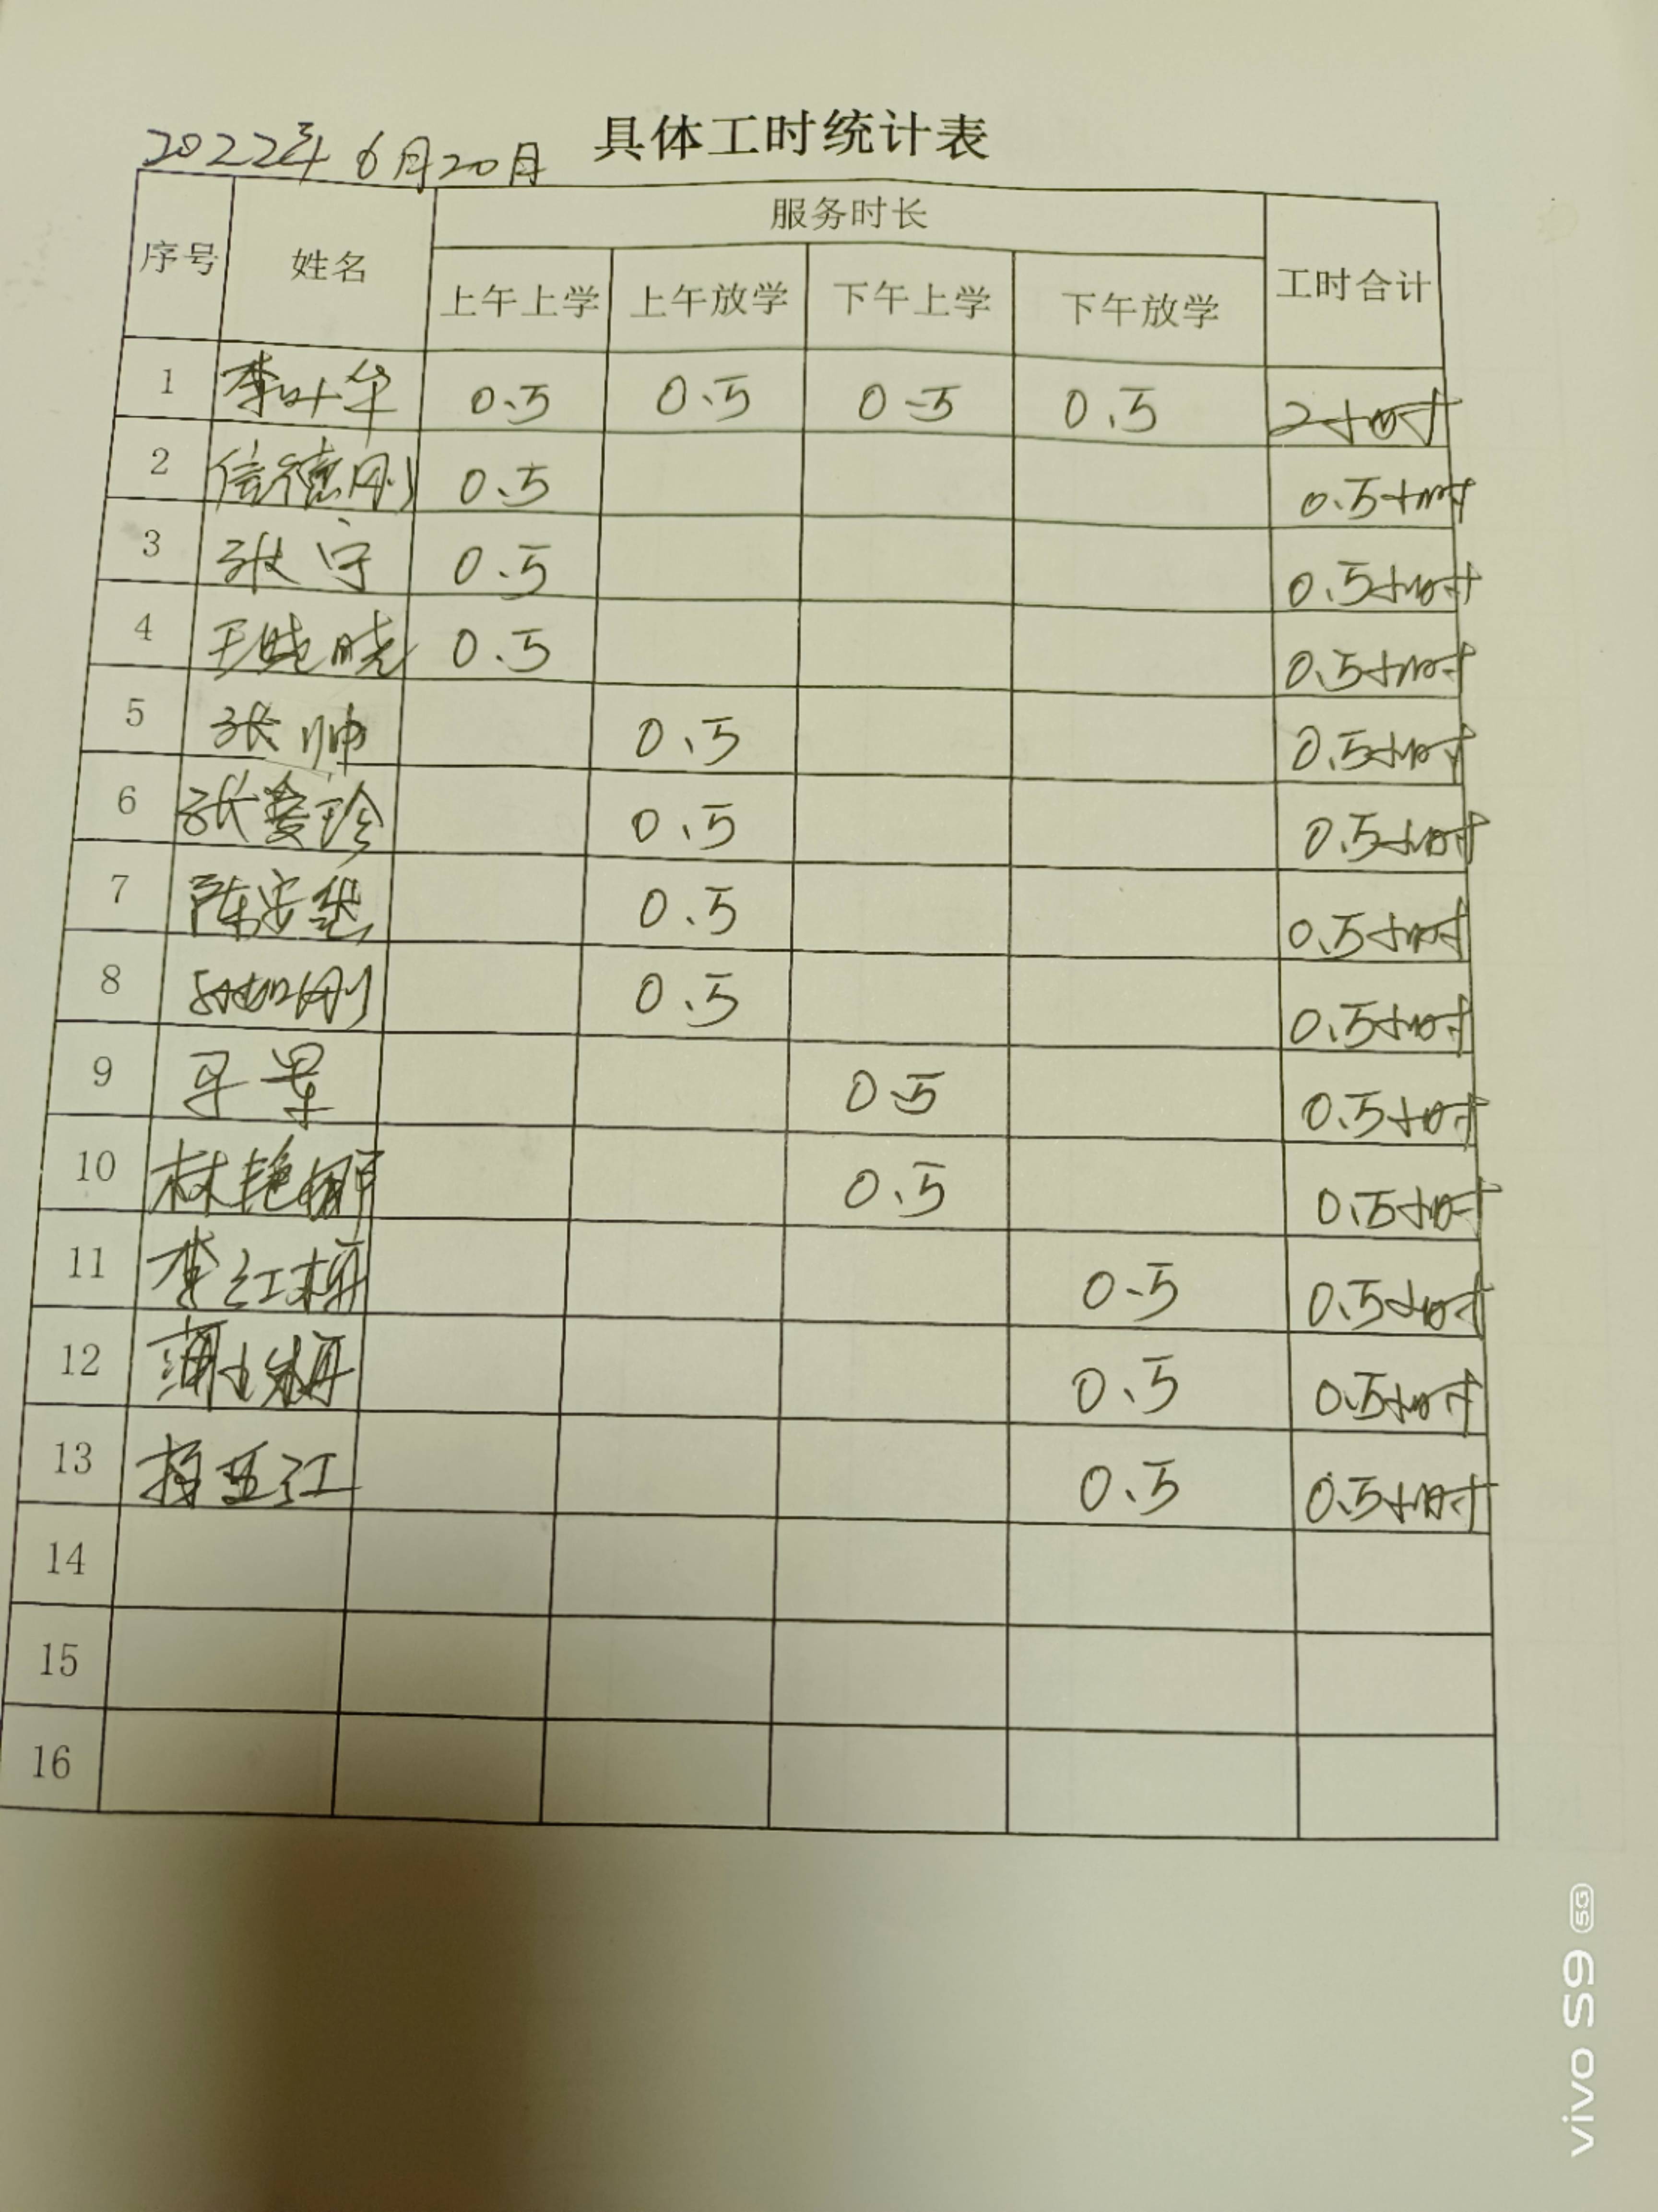 2022年6月20日 具体工时统计表
序号 姓名 服务时长 工时合计
上午上学 上午放学 下午上学 下午放学
1 李叶华 0.5 0.5 0.5 0.5 2小时
2 信德刚 0.5 0.5小时
3 张守 0.5 0.5小时
4 王晓晓 0.5 0.5小时
5 张帅 0.5 0.5小时
6 张爱玲 0.5 0.5小时
7 陈安然 0.5 0.5小时
8 孙如刚 0.5 0.5小时
9 0.5 0.5小时
10 林艳娜 0.5 0.5小时
11 李红梅 0.5 0.5小时
12 0.5 0.5小时
13 0.5 0.5小时
14
15
16
vivo S9 5G